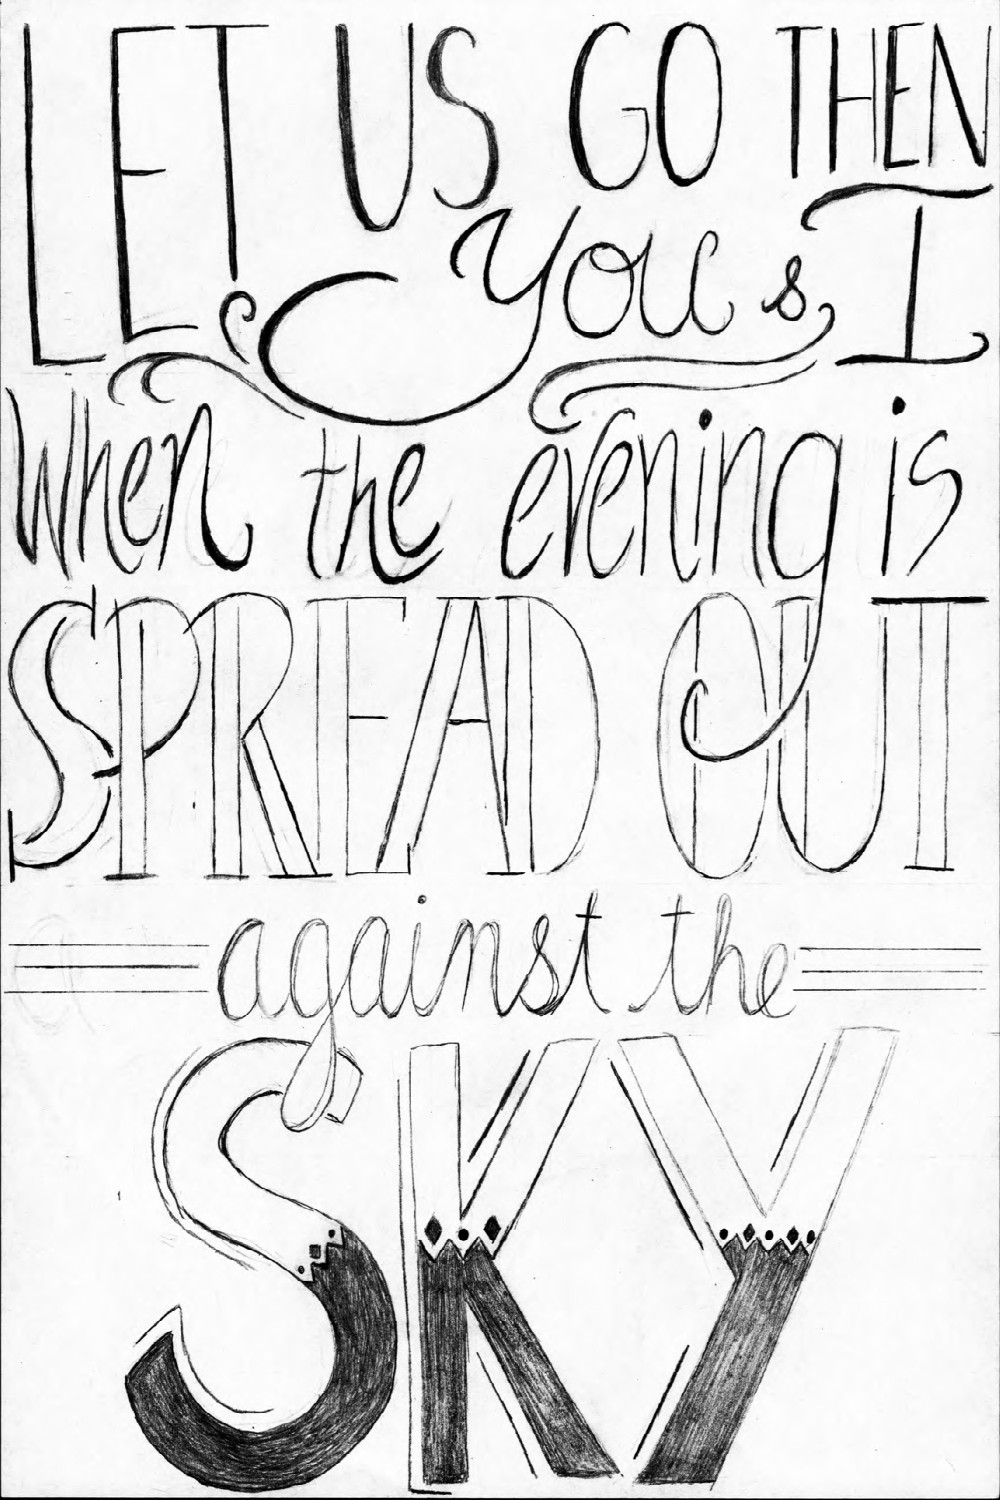 LET US GO THEN
You & I
When the evening is
SPREAD OUT
against the
SKY